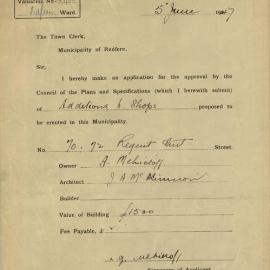 Valuation No.
Redfern Ward.
5 June 1947
The Town Clerk,
Municipality of Redfern.
Sir,
I hereby make an application for the approval by the
Council of the Plans and Specifications (which I herewith submit)
of Additions to Shops proposed to
be erected in this Municipality.
No. 70-72 Regent Street Street.
Owner A.
Architect J A
Builder
Value of Building £1500
Fee Payable,
Signature of Applicant